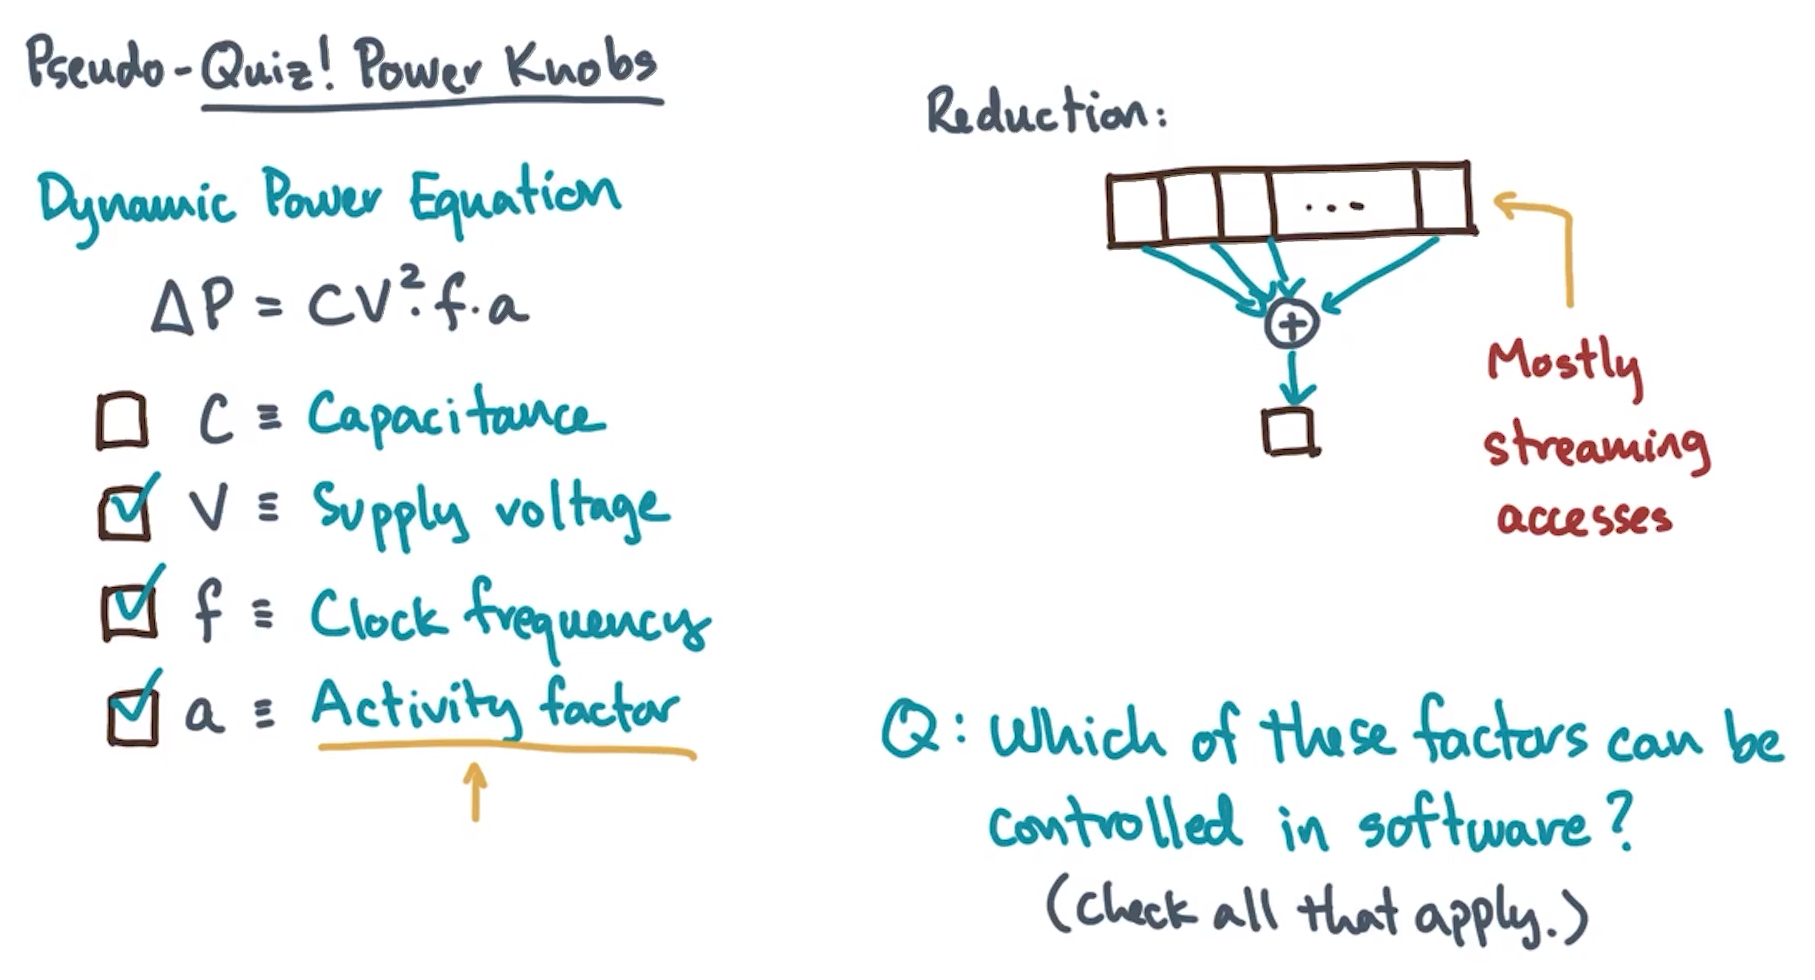 Pseudo-Quiz! Power Knobs
Dynamic Power Equation
ΔP = CV²·f·a
C ≡ Capacitance
V ≡ Supply voltage
f ≡ Clock frequency
a ≡ Activity factor
Reduction:
...
+
Mostly
streaming
accesses
Q: Which of these factors can be
controlled in software?
(check all that apply.)